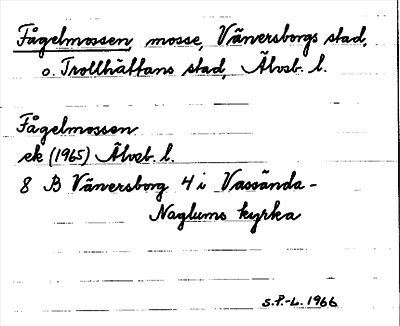 Fågelmossen, mosse, Vänersborgs stad,
o. Trollhättans stad, Älvsb. l.
Fågelmossen
ek (1965) Älvsb. l.
8 B Vänersborg 4 i Vassända-
Naglums kyrka
S.P.-L. 1966